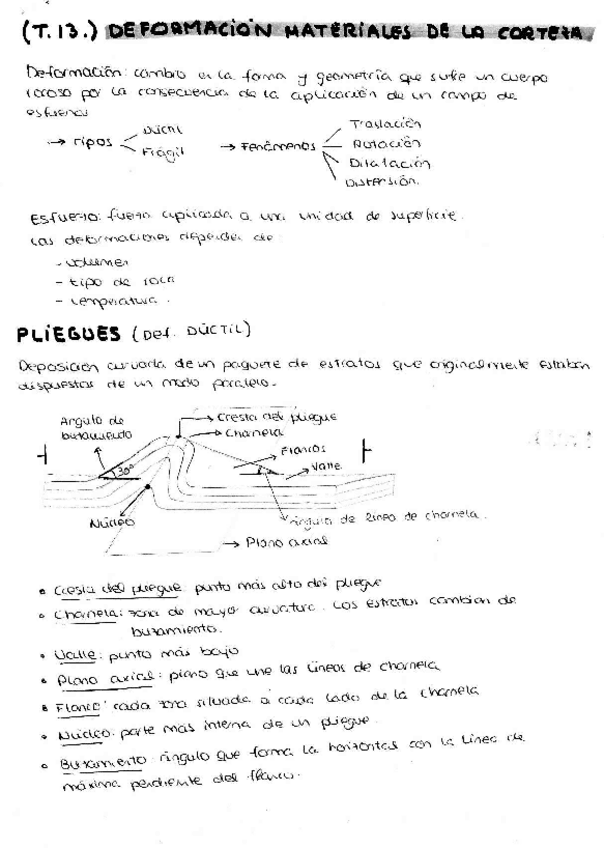 (T.13.) DEFORMACIÓN MATERIALES DE LA CORTEZA.
Deformación: cambio en la forma y geometría que sufre un cuerpo
rocoso por la consecuencia de la aplicación de un campo de
esfuerzos
→ Tipos
Dúctil
Frágil
→ Fenómenos
Traslación
Rotación
Dilatación
Distorsión.
Esfuerzo: fuerza aplicada a una unidad de superficie.
Las deformaciones dependen de:
- volumen
- tipo de roca
- temperatura.
PLIEGUES (Def. DÚCTIL)
Deposición curvada de un paquete de estratos que originalmente estaban
dispuestos de un modo paralelo.
Angulo de
buzamiento
Cresta del pliegue
Charnela
Flancos
Valle
30°
Núcleo
ángulo de línea de charnela.
Plano axial
• Cresta del pliegue: punto más alto del pliegue
• Charnela: zona de mayor curvatura. Los estratos cambian de
buzamiento.
• Valle: punto más bajo
• Plano axial: plano que une las líneas de charnela
• Flanco: cada zona situada a cada lado de la charnela
• Núcleo: parte más interna de un pliegue.
• Buzamiento: ángulo que forma la horizontal con la línea de
máxima pendiente del flanco.